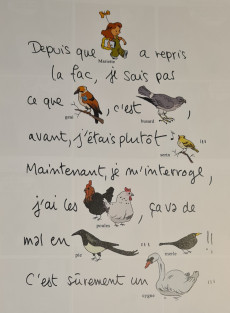 Depuis que a repris
la fac, je sais pas
ce que , c'est ,
busard
avant, j'étais plutôt ...
Maintenant, je m'interroge,
j'ai les , ça va de
poules
mal en ...
pie
C'est sûrement un ...
cygne